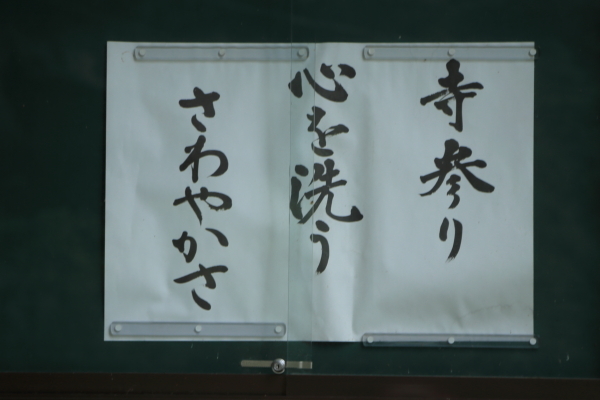 寺参り
心を洗う
さわやかさ